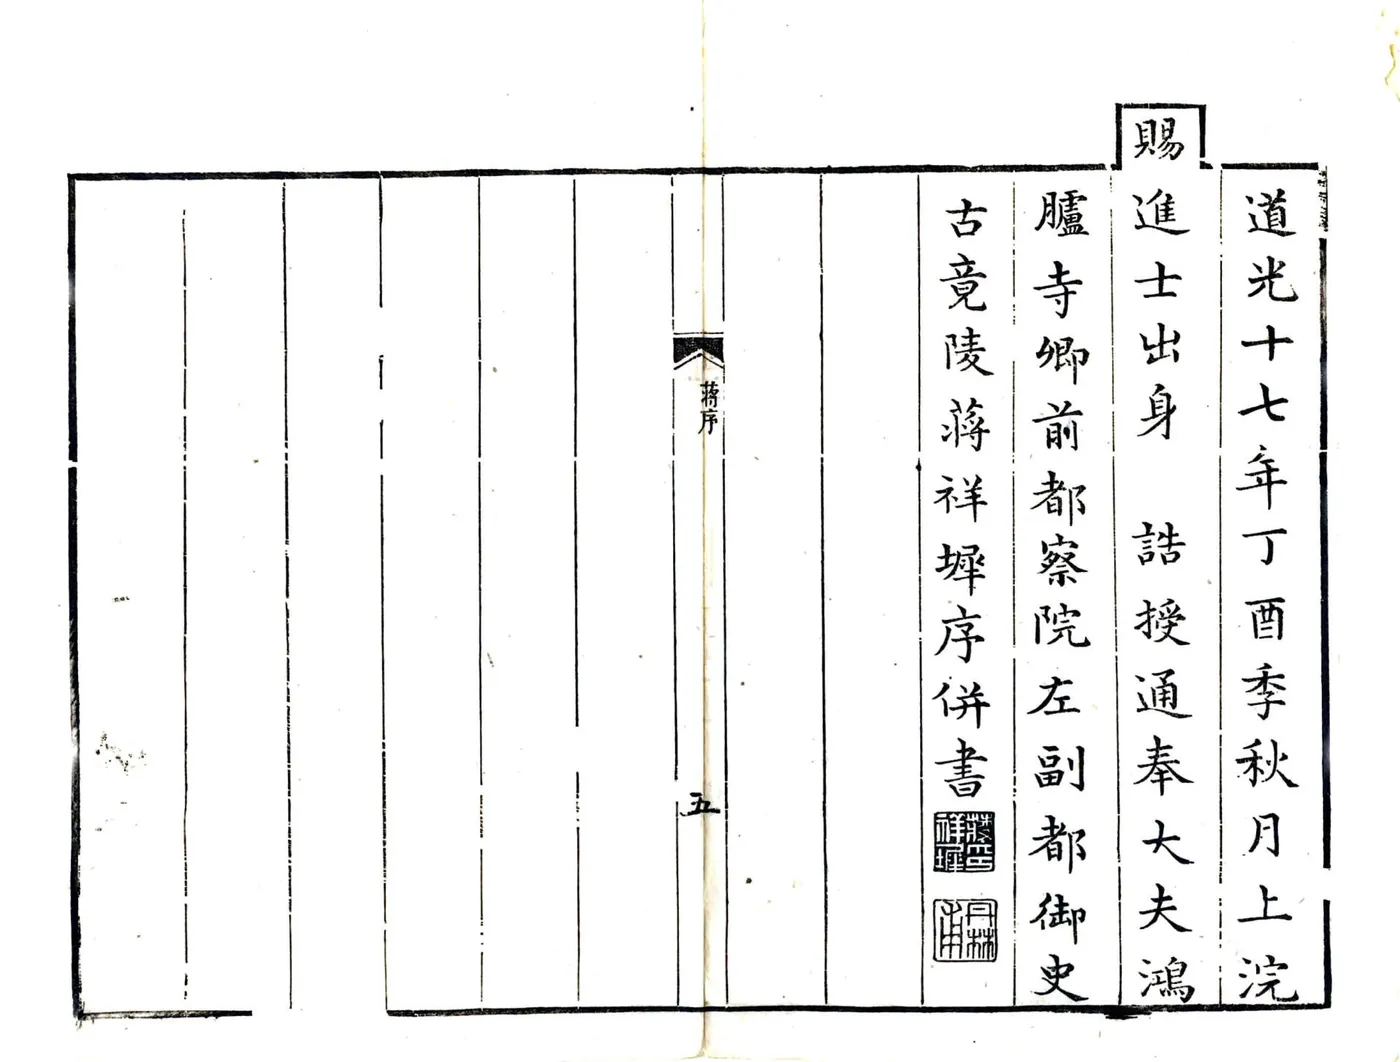 道光十七年丁酉季秋月上浣
賜進士出身 誥授通奉大夫鴻
臚寺卿前都察院左副都御史
古竟陵蔣祥墀序併書
蔣印祥墀
丹林
蔣序
五